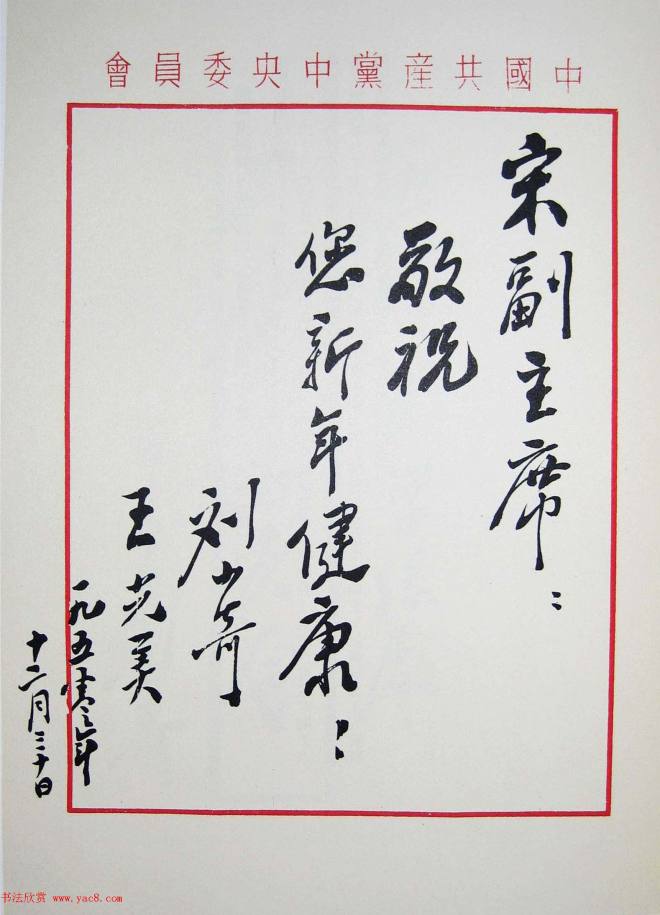 中國共産黨中央委員會
宋副主席：
敬祝
您新年健康！
刘少奇
王光美
一九五零年
十二月三十日
书法欣赏 www.yac8.com